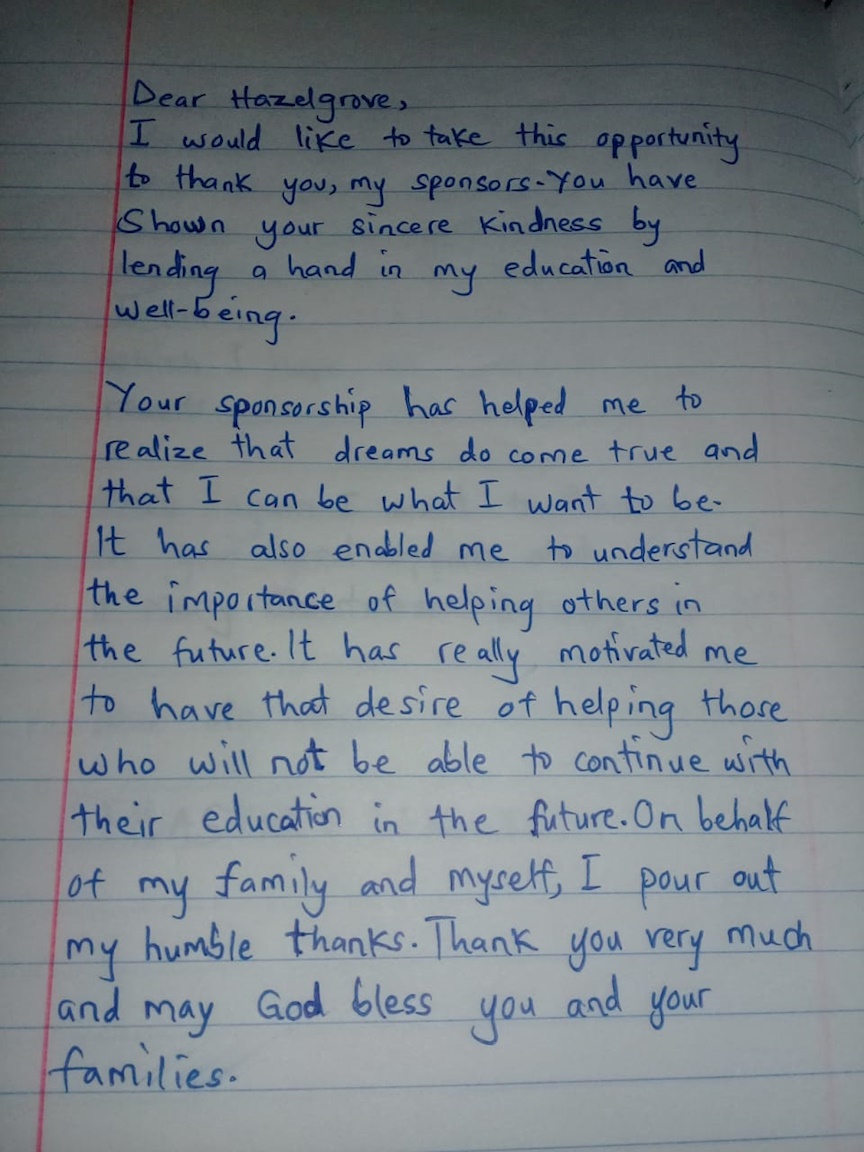 Dear Hazelgrove,
I would like to take this opportunity
to thank you, my sponsors. You have
Shown your sincere kindness by
lending a hand in my education and
well-being.
Your sponsorship has helped me to
realize that dreams do come true and
that I can be what I want to be.
It has also enabled me to understand
the importance of helping others in
the future. It has really motivated me
to have that desire of helping those
who will not be able to continue with
their education in the future. On behalf
of my family and myself, I pour out
my humble thanks. Thank you very much
and may God bless you and your
families.